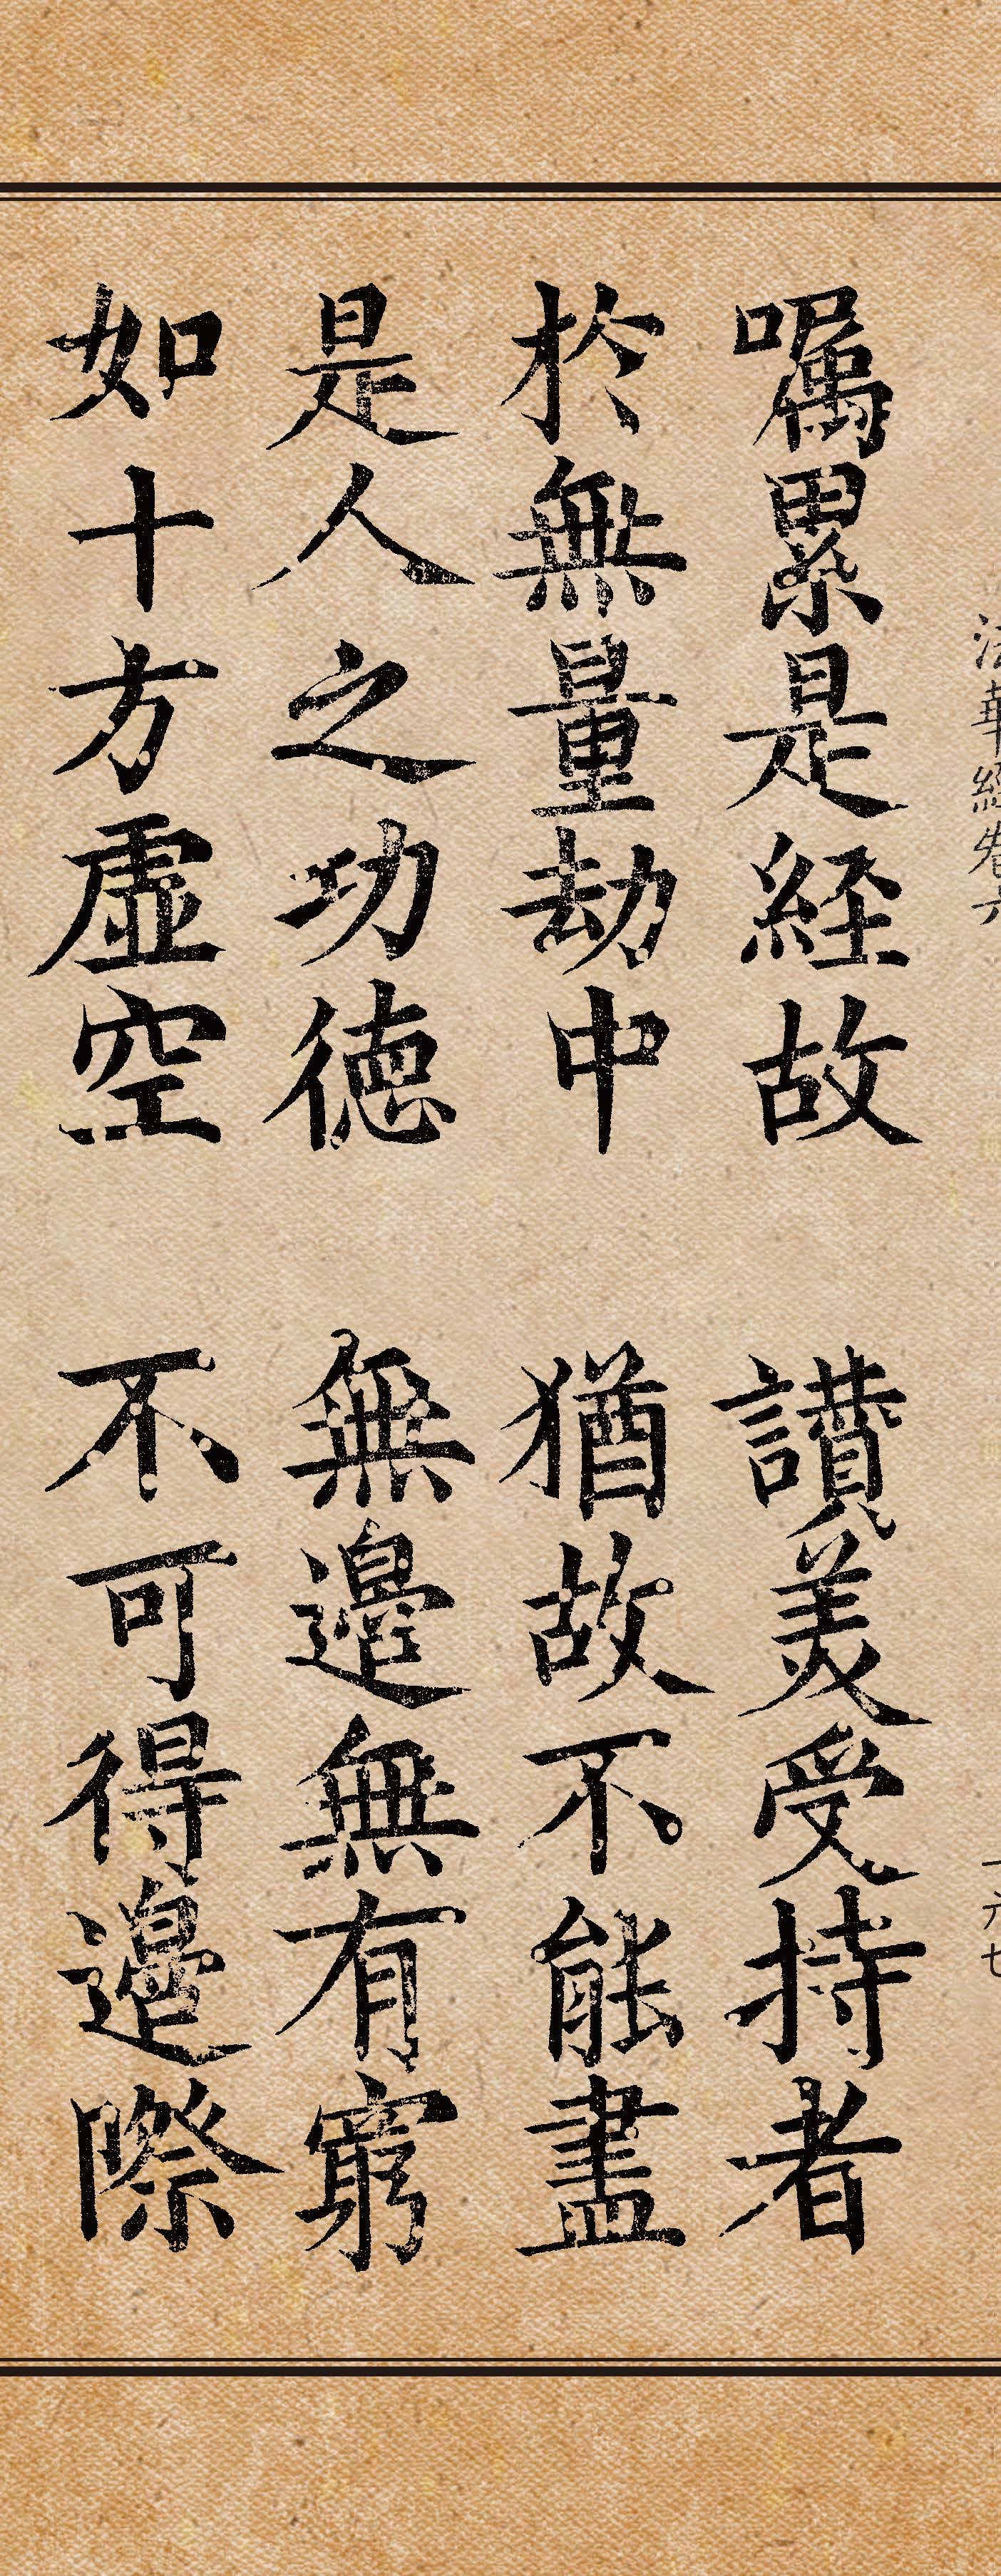 法華經卷六 一六七
嘱累是経故 讃美受持者
於無量劫中 猶故不能盡
是人之功徳 無邊無有窮
如十方虚空 不可得邊際